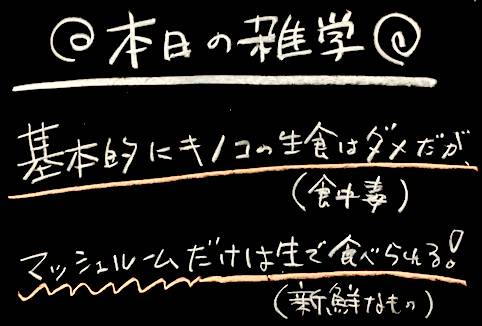 @本日の雑学@
基本的にキノコの生食はダメだが、
(食中毒)
マッシュルームだけは生で食べられる!
(新鮮なもの)